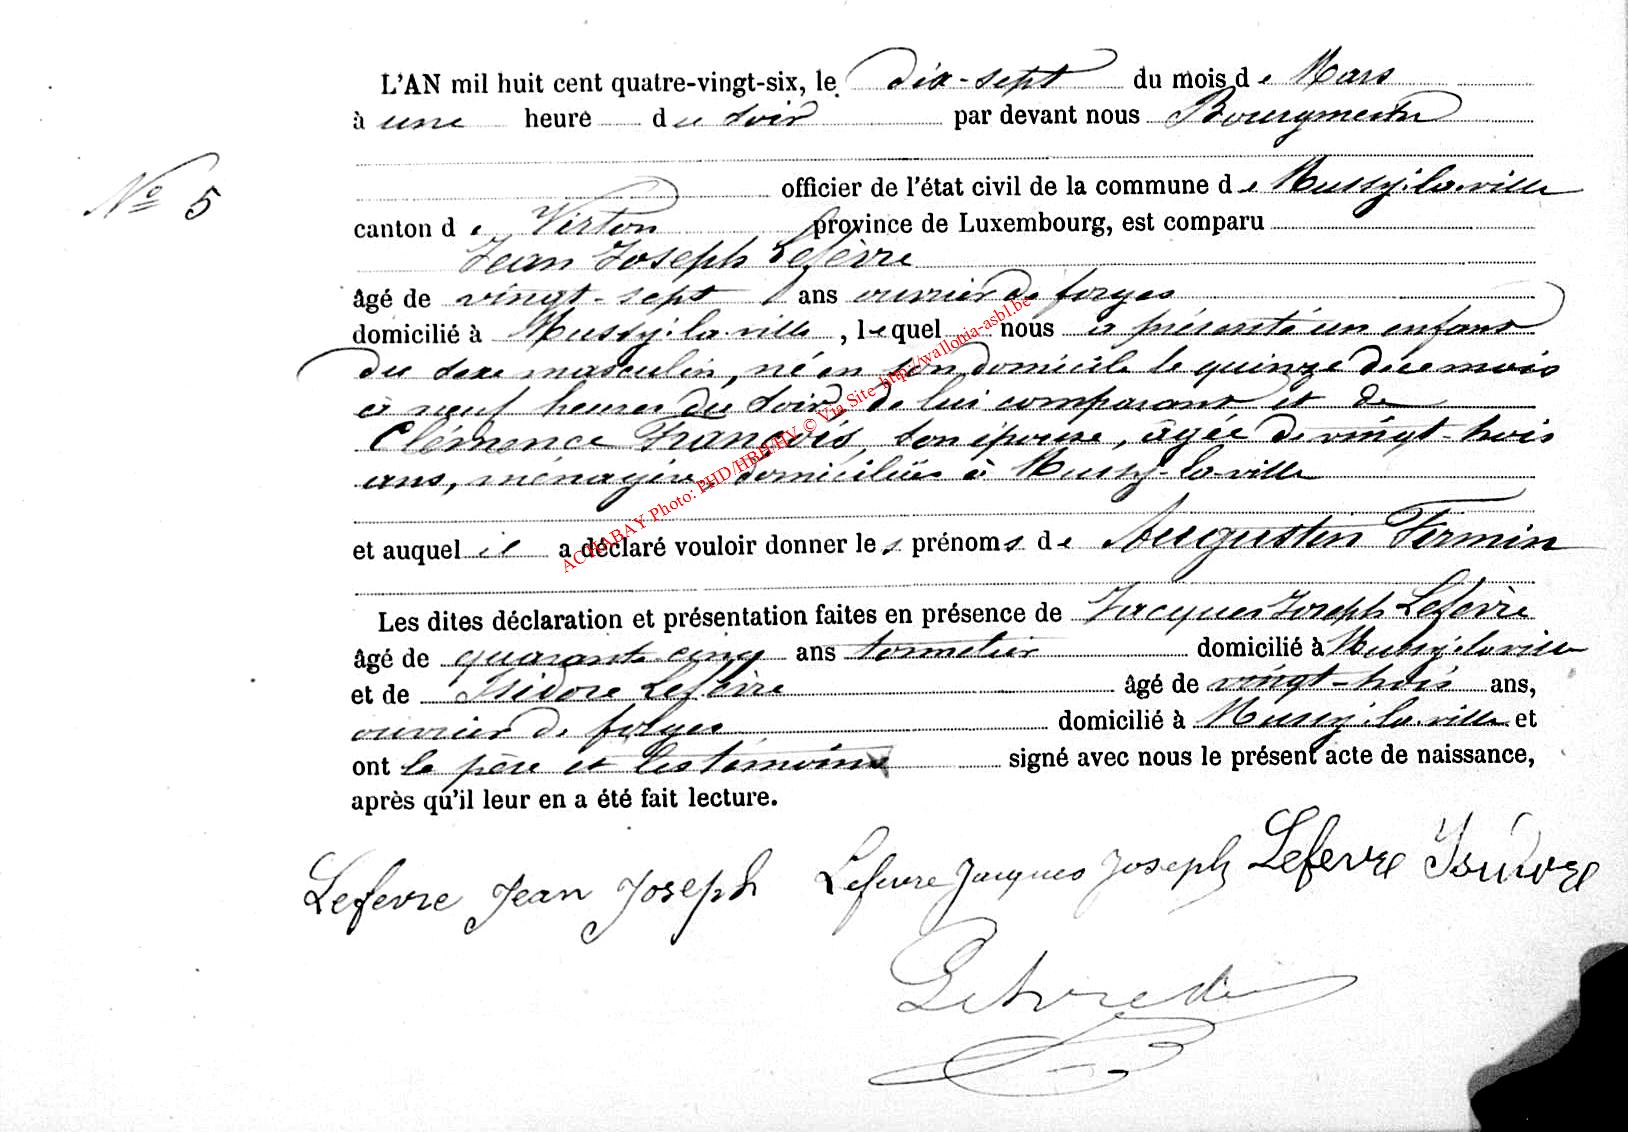 L'AN mil huit cent quatre-vingt-six, le dix-sept du mois de Mars
à une heure du soir par devant nous Bourgmestre
officier de l'état civil de la commune de Mussy-la-ville
N° 5
canton de Virton province de Luxembourg, est comparu
Jean Joseph Lefèvre
âgé de vingt-sept ans ouvrier de forges
domicilié à Mussy-la-ville, lequel nous a présenté un enfant
du sexe masculin, né en son domicile le quinze de ce mois
à neuf heures du soir, de lui comparant et de
Clémence François, son épouse, âgée de vingt-trois
ans, ménagère, domiciliée à Mussy-la-ville
et auquel il a déclaré vouloir donner les prénoms de Augustin Firmin
Les dites déclaration et présentation faites en présence de Jacques Joseph Lefèvre
âgé de quarante cinq ans domicilié à Mussy-la-ville
et de Isidore Lefèvre âgé de vingt-trois ans,
ouvrier de forges domicilié à Mussy-la-ville et
ont le père et les témoins signé avec nous le présent acte de naissance,
après qu'il leur en a été fait lecture.
Lefevre Jean Joseph Lefevre Jacques Joseph Lefevre Isidore
AC HABAY Photo: PHD/HRH/HV © Via Site http://wallonia-asbl.be